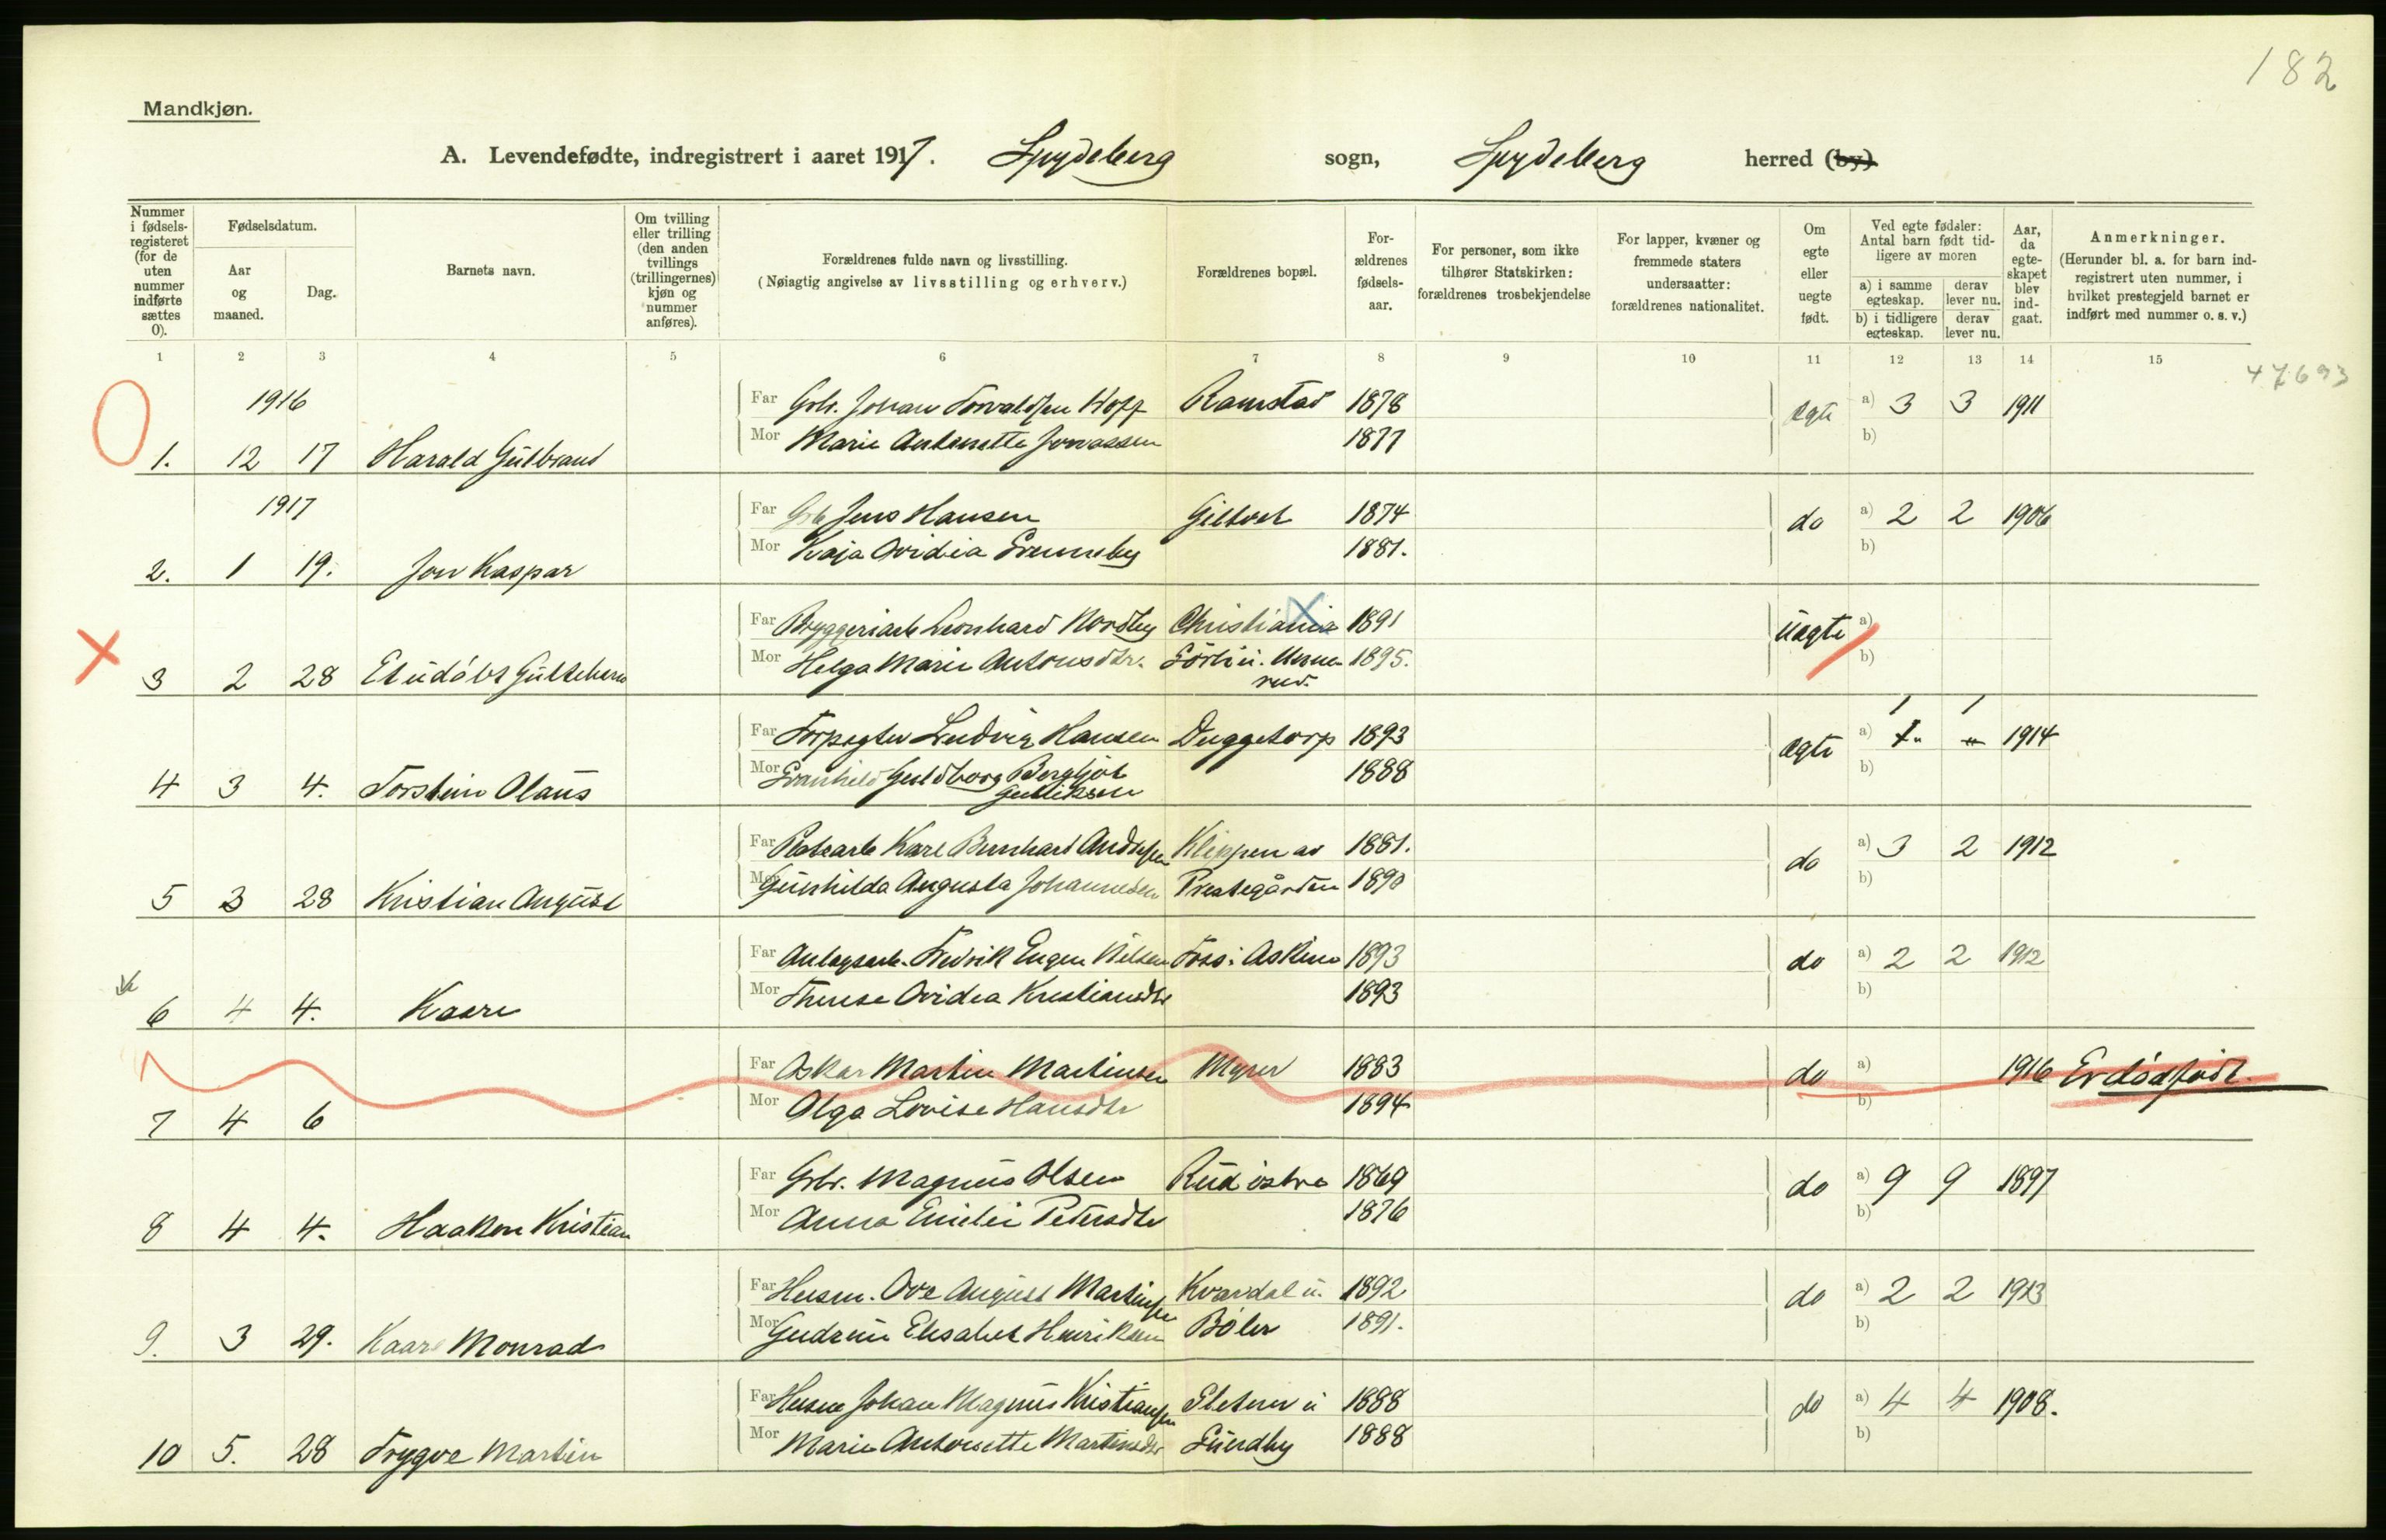 182
Mandkjøn.
A. Levendefødte, indregistrert i aaret 1917. Spydeberg sogn, Spydeberg herred (by)
Nummer i fødsels-registeret (for de uten nummer indførte sættes 0).
Fødselsdatum.
Aar og maaned.
Dag.
Barnets navn.
Om tvilling eller trilling (den anden tvillings (trillingernes) kjøn og nummer anføres).
Forældrenes fulde navn og livsstilling.
(Nøiagtig angivelse av livsstilling og erhverv.)
Forældrenes bopæl.
For-ældrenes fødsels-aar.
For personer, som ikke tilhører Statskirken: forældrenes trosbekjendelse
For lapper, kvæner og fremmede staters undersaatter: forældrenes nationalitet.
Om egte eller uegte født.
Ved egte fødsler: Antal barn født tid-ligere av moren
a) i samme egteskap. derav lever nu.
b) i tidligere egteskap. derav lever nu.
Aar, da egte-skapet blev ind-gaat.
Anmerkninger.
(Herunder bl. a. for barn ind-registrert uten nummer, i hvilket prestegjeld barnet er indført med nummer o. s. v.)
1 2 3 4 5 6 7 8 9 10 11 12 13 14 15
47693
1916 Far Grb. Johan Torvaldsen Hoff Ramstad 1878 Ægte a) 3 3 1911
1. 12 17 Harald Gulbrand Mor Marie Antonette Jonassen 1877 b)
1917 Far Grb Jens Hansen 1874 do a) 2 2 1906
2. 1 19. Jon Kaspar Mor Kaja Ovidia 1881. b)
Far Bryggeriarb Leonhard Nordby Christiania 1891 Uægte a)
3 2 28 Et udøbt Guttebarn Mor Helga Marie Antonsdtr. 1895. b)
rud.
Far Forpagter Ludvig Hansen Duggetorp 1893 ægte a) 1 1 1914
4 3 4. Torstein Olaus Mor Guldborg Bergljot 1888 b)
Gulliksen
Far Karl Bernhard Andersen Klippen av 1881. do a) 3 2 1912
5 3 28 Kristian August Mor Gunhilda Augusta Johannesen Prestegården 1890 b)
Far Anlagsarb. Fredrik Eugen Nilsen Foss i Askim 1893 do a) 2 2 1912
6 4 4. Kaare Mor Therese Ovidea Kristiansdtr 1893 b)
Far Oskar Martin Martinsen Myrer 1883 do a) 1916 Er dødfødt.
7 4 6 Mor Olga Lovise Hansdtr 1894 b)
Far Grbr. Magnus Olsen Rud østre 1869 do a) 9 9 1897
8 4 4. Haakon Kristian Mor Anna Emilie Petersdtr 1876 b)
Far Husm. Ove August Martinsen Kvardal u. 1892 do a) 2 2 1913
9. 3 29. Kaare Monrad Mor Gudrun Elisabet Henriksen Böler 1891. b)
Far Husm Johan Magnus Kristiansen Sletner u 1888 do a) 4 4 1908.
10 5. 28 Trygve Martin Mor Marie Antonette Martinsdtr Lundby 1888 b)